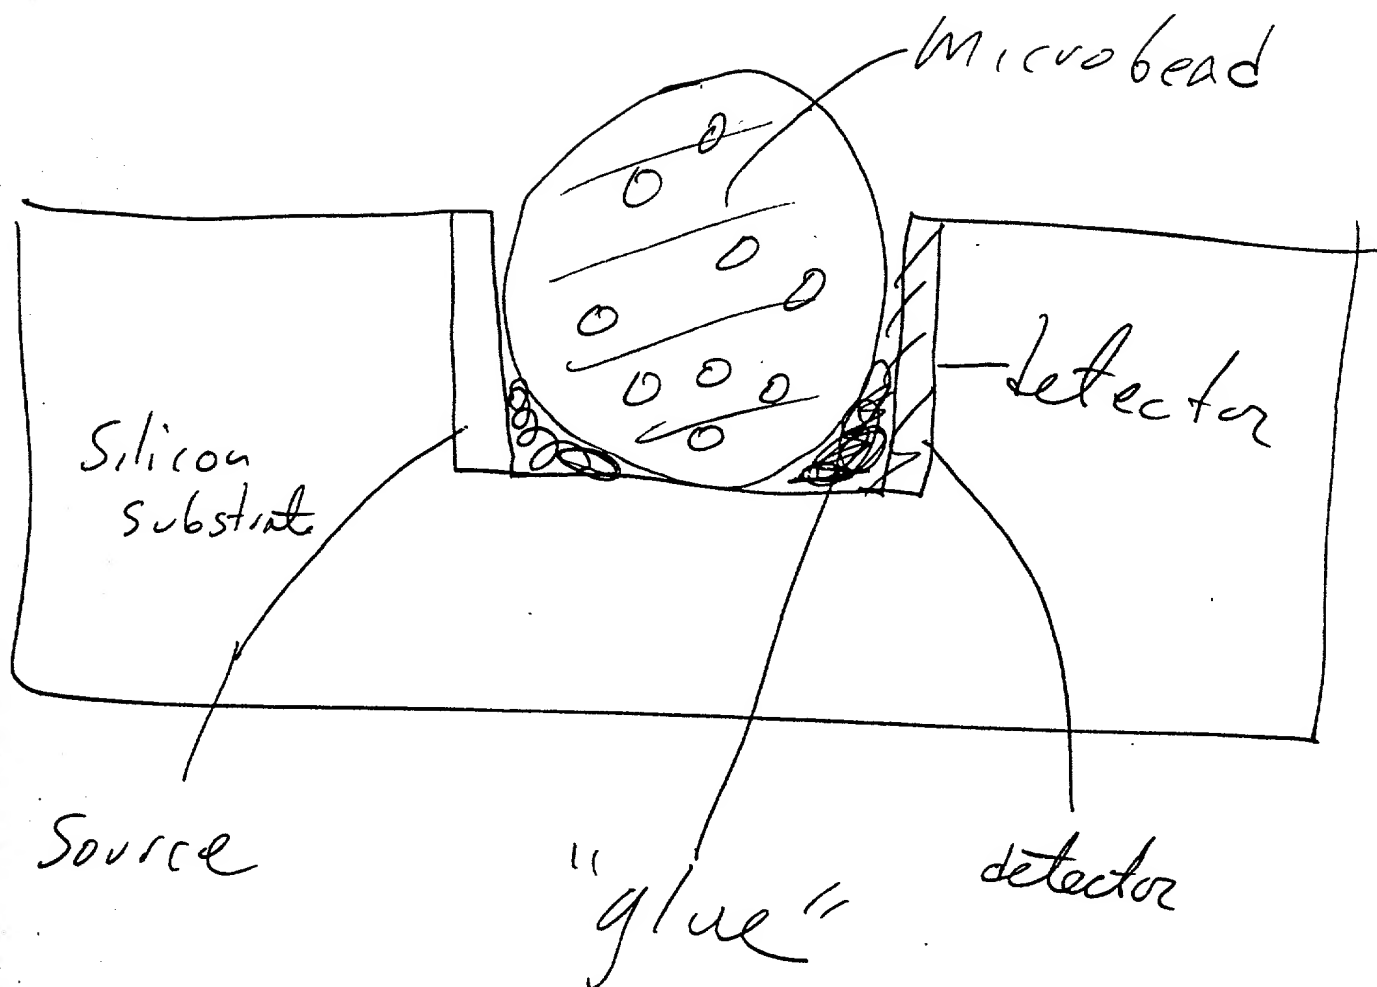 Microbead
detector
Silicon
substrate
Source
"glue"
detector